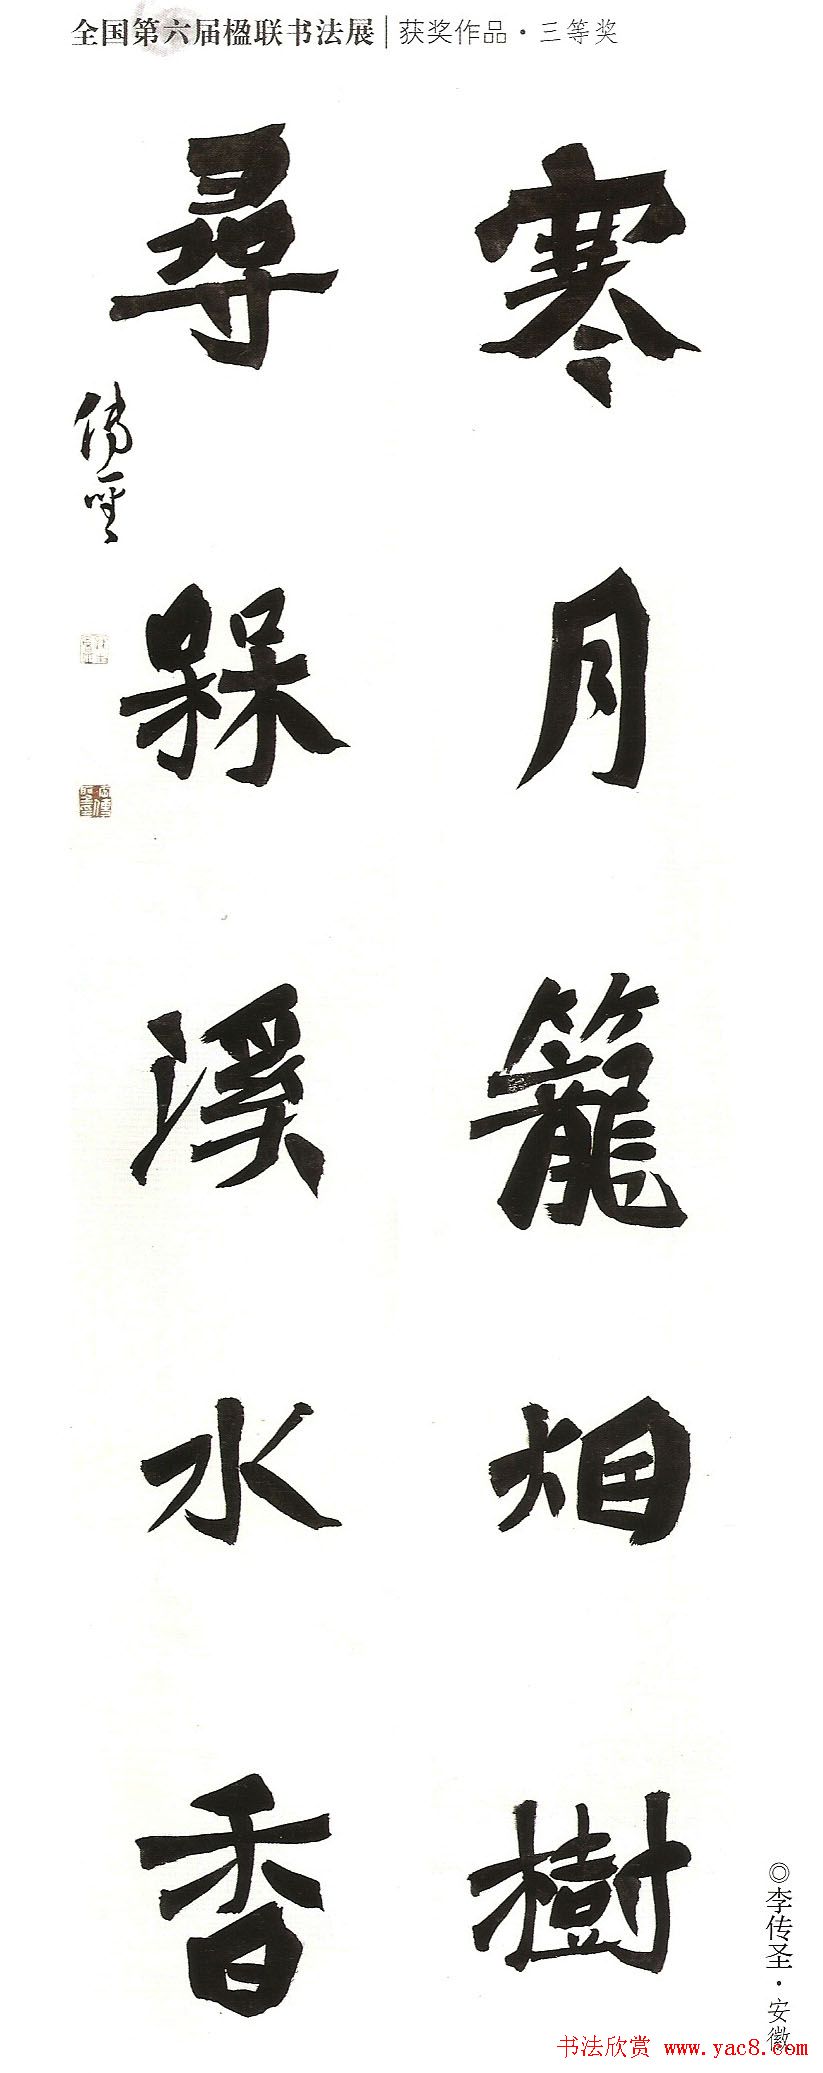 全国第六届楹联书法展|获奖作品·三等奖
寒月籠烟樹
尋槑溪水香
傳聖
◎李传圣·安徽
书法欣赏 www.yac8.com